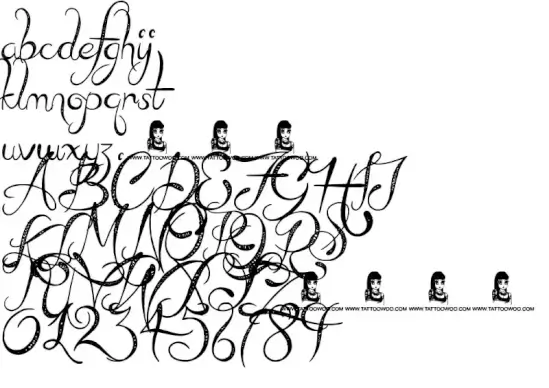 abcdefghij
klmnopqrst
uvwxyz.
WWW.TATTOOWOO.COM WWW.TATTOOWOO.COM WWW.TATTOOWOO.COM
ABCDEFGHIJ
KLMNOPQRS
TUVWXYZ
WWW.TATTOOWOO.COM WWW.TATTOOWOO.COM WWW.TATTOOWOO.COM WWW.TATTOOWOO.COM
0123456789